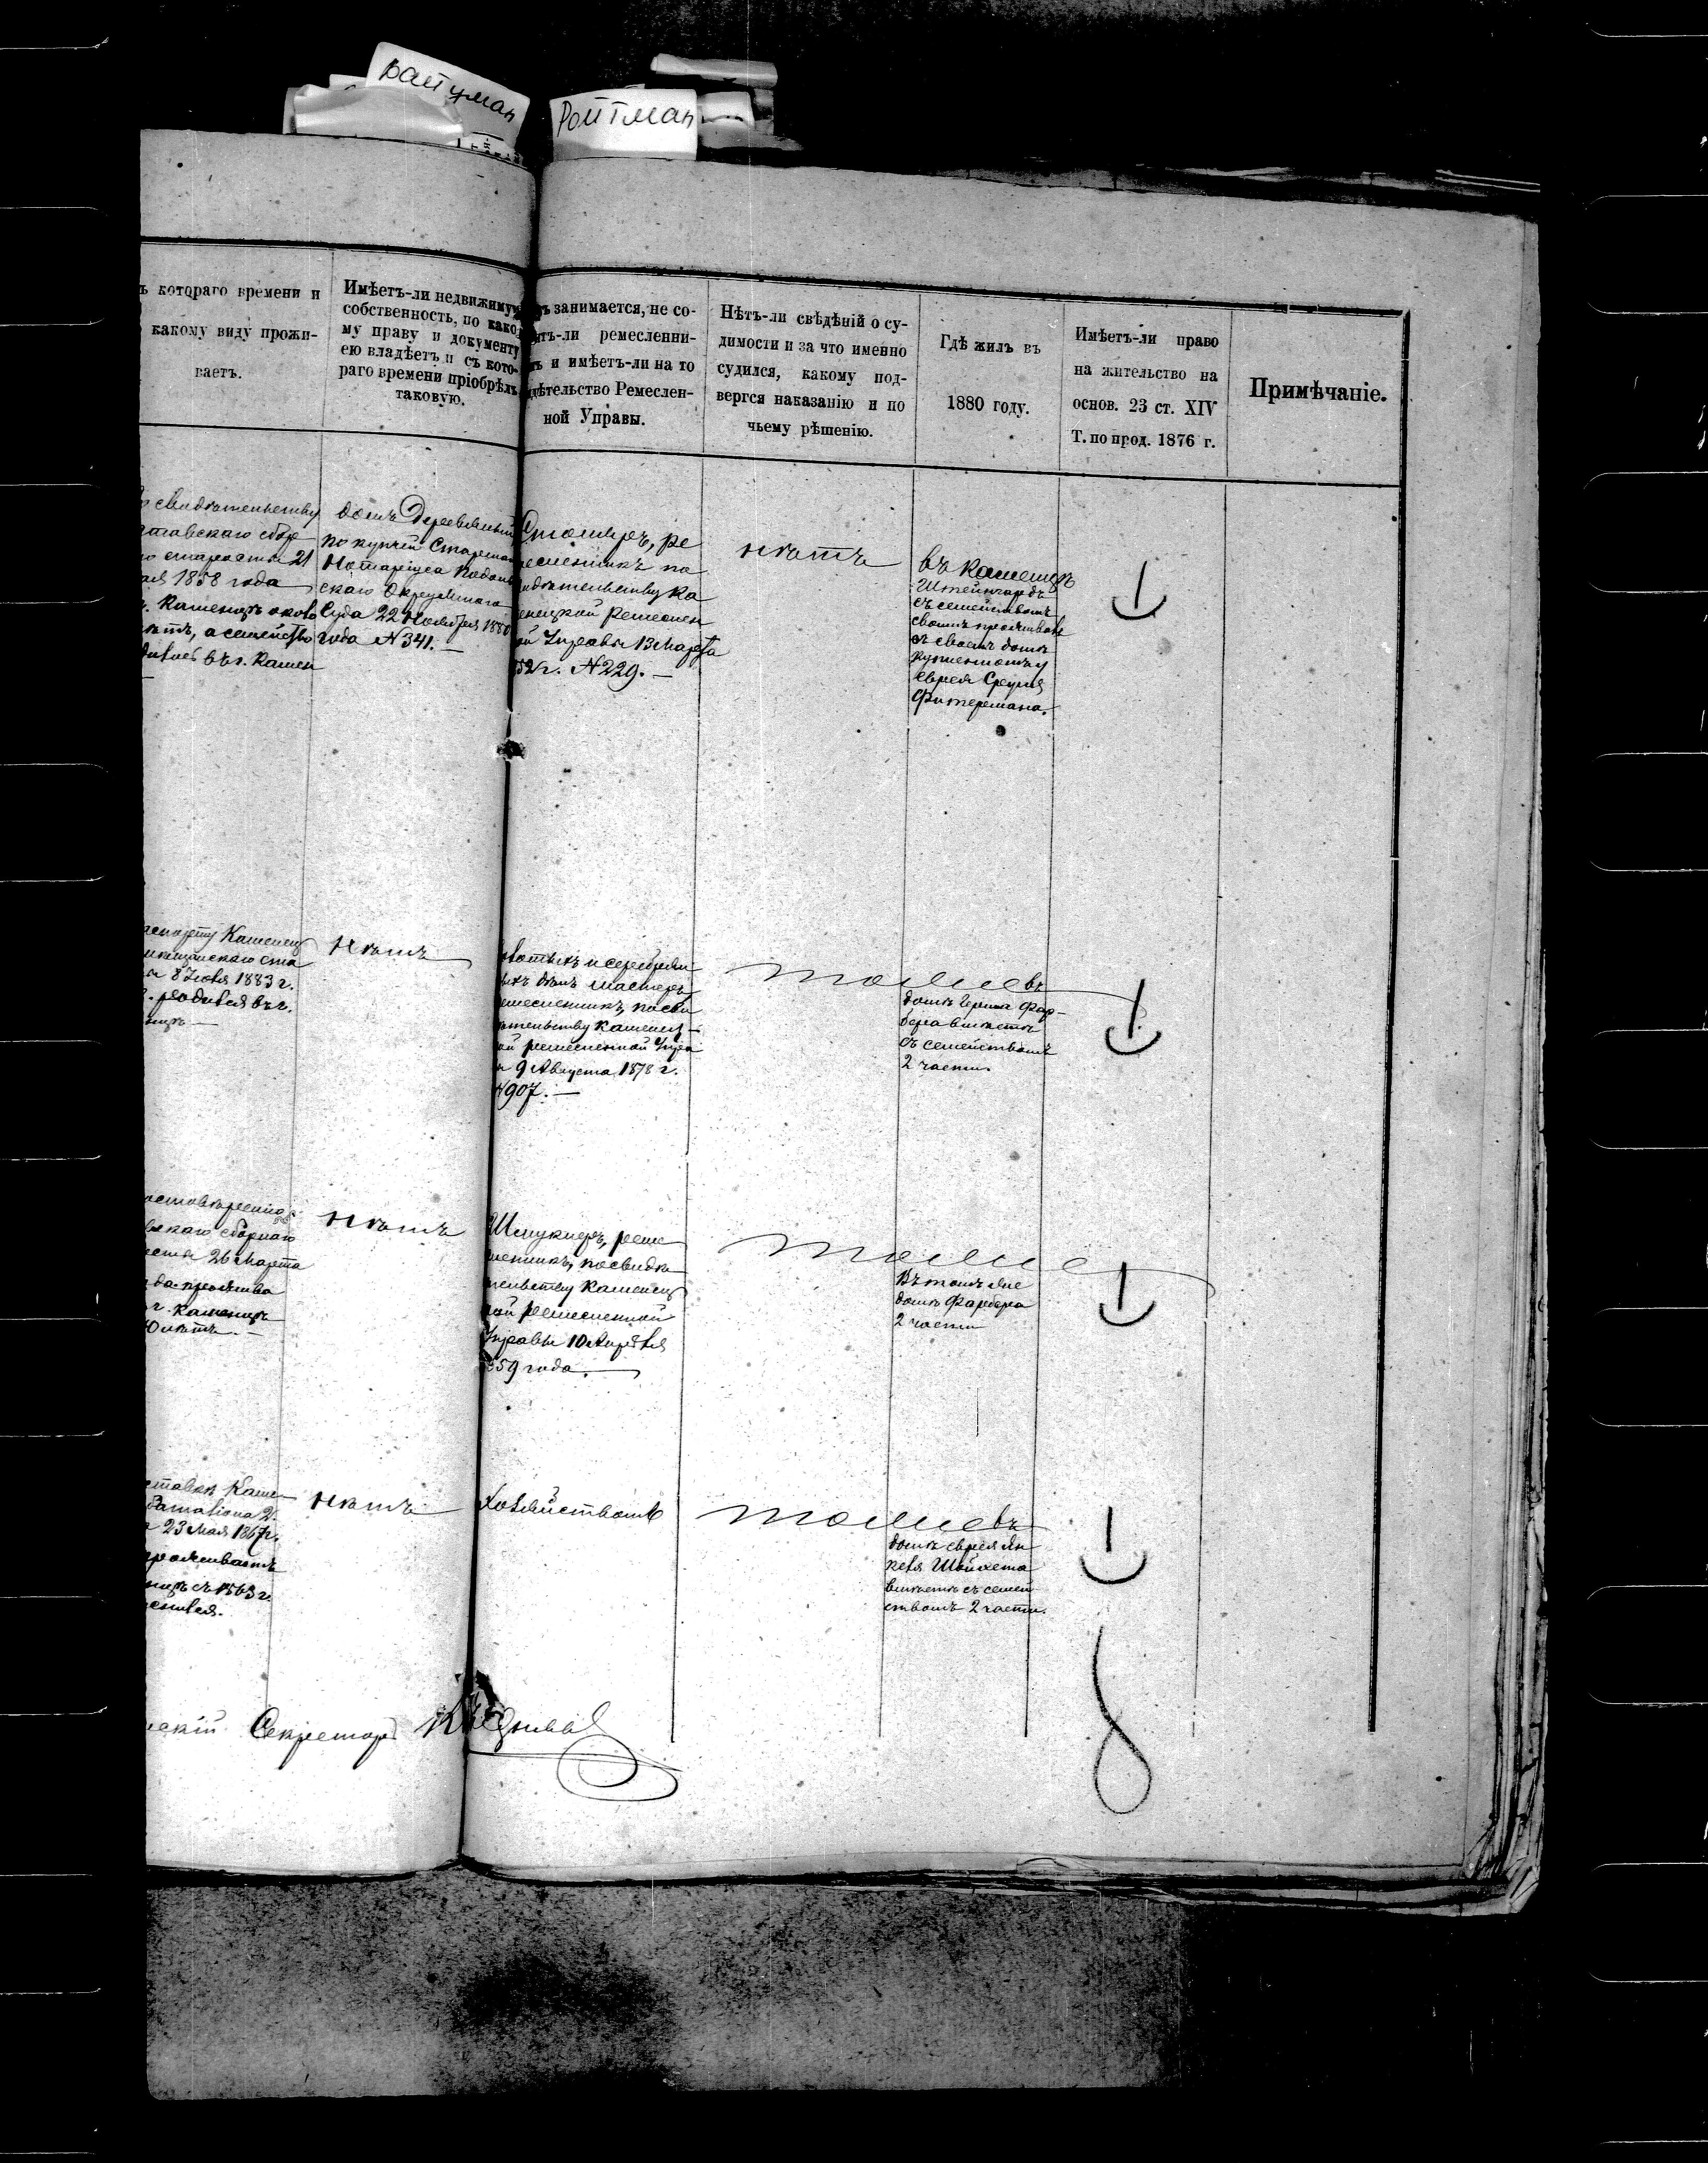 Ройтман
ъ котораго времени и
какому виду прожи-
ваетъ.
Имѣетъ-ли недвижимую
собственность, по како-
му праву и документу
ею владѣетъ и съ кото-
раго времени пріобрѣлъ
таковую.
занимается, не со-
ли ремесленни-
и имѣетъ-ли на то
дѣтельство Ремеслен-
ной Управы.
Нѣтъ-ли свѣдѣній о су-
димости и за что именно
судился, какому под-
вергся наказанію и по
чьему рѣшенію.
Гдѣ жилъ въ
1880 году.
Имѣетъ-ли право
на жительство на
основ. 23 ст. XIV
Т. по прод. 1876 г.
Примѣчаніе.
свидѣтельству
старосты 21
1858 года
г. Каменцѣ около
лѣтъ, а семейство
въ г. Камен
домъ деревянный
по купчей Старшаго
Нотаріуса Подоль
скаго Окружнаго
Суда 22 Ноября 1880
года N 341. —
Столяръ, ре
месленникъ по
идѣтельству Ка
енецкой ремеслен
ой Управы 13 Марта
52 г. N 229. —
нѣтъ
въ Каменцѣ
съ семействомъ
своимъ проживалъ
въ своемъ домѣ
купленномъ у
еврея Сруля
Фитермана.
аспорту Каменец
мѣщанскаго ста
ы 8 Іюля 1883 г.
г. родился въ г.
нцѣ —
нѣтъ
мастеръ
емесленникъ, по сви
ѣтельству Каменец
ой ремесленной Упра
ы 9 Августа 1878 г.
N 907. —
тоже
въ
домѣ Герша Фар-
бера вмѣстѣ
съ семействомъ
2 части.
скаго сборнаго
26 Марта
да прожива
г. Каменцѣ
лѣтъ. —
нѣтъ
Шмуклеръ, реме
ленникъ, по свидѣ
тельству Каменец
кой ремесленной
Управы 10 Апрѣля
859 года.
тоже
въ томъ же
домѣ Фарбера
2 части
23 Мая 1867 г.
проживаетъ
нцѣ съ 1863 г.
нѣтъ
Хозяйствомъ
тоже
въ
домѣ еврея Ян
келя Шойхета
вмѣстѣ съ семей
ствомъ 2 части.
скій Секретарь